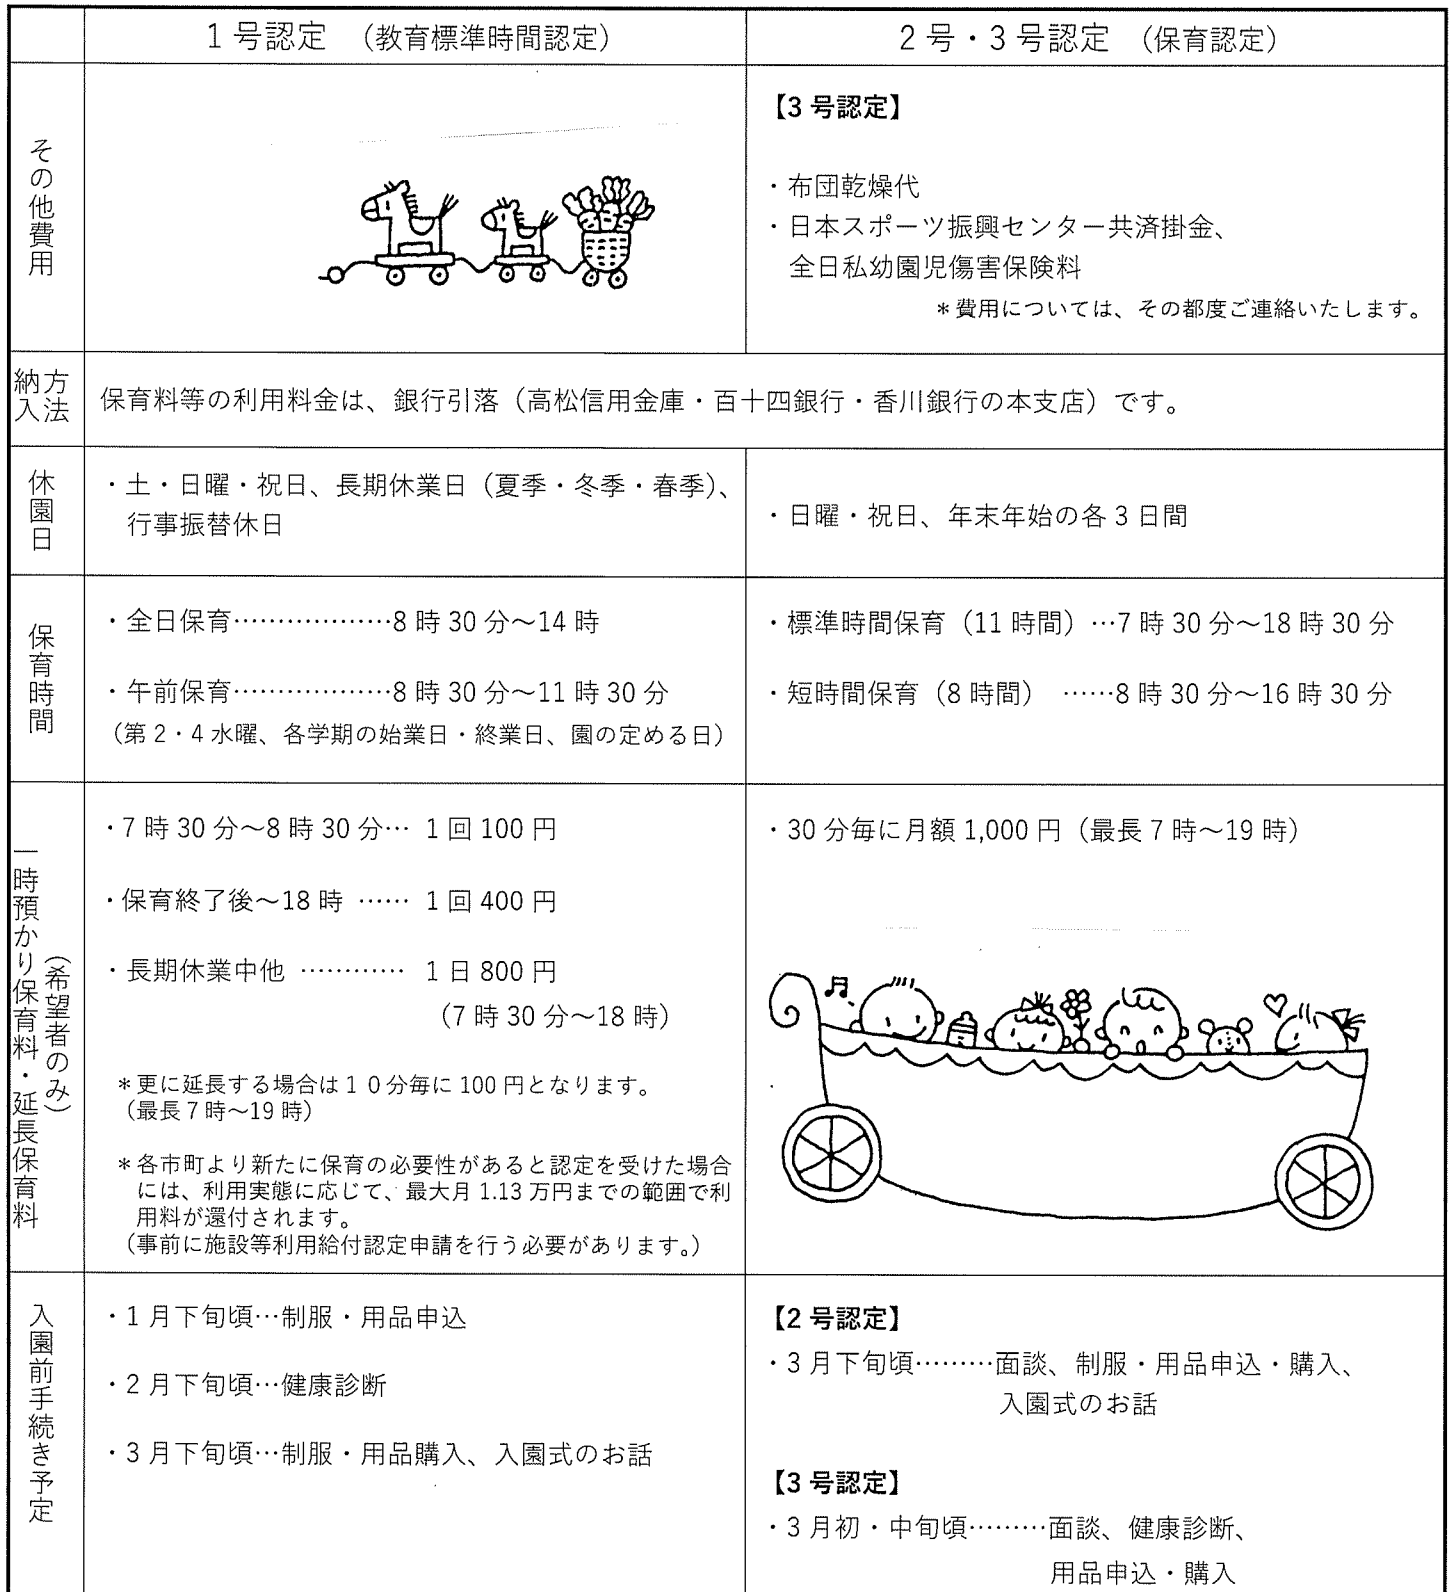 1号認定 （教育標準時間認定）
2号・3号認定 （保育認定）
その他費用
【3号認定】
・布団乾燥代
・日本スポーツ振興センター共済掛金、
全日私幼園児傷害保険料
＊費用については、その都度ご連絡いたします。
納入方法
保育料等の利用料金は、銀行引落（高松信用金庫・百十四銀行・香川銀行の本支店）です。
休園日
・土・日曜・祝日、長期休業日（夏季・冬季・春季）、
行事振替休日
・日曜・祝日、年末年始の各3日間
保育時間
・全日保育………………8時30分～14時
・午前保育………………8時30分～11時30分
（第2・4水曜、各学期の始業日・終業日、園の定める日）
・標準時間保育（11時間）…7時30分～18時30分
・短時間保育（8時間） ……8時30分～16時30分
一時預かり保育料・延長保育料
（希望者のみ）
・7時30分～8時30分… 1回100円
・保育終了後～18時 …… 1回400円
・長期休業中他 ………… 1日800円
（7時30分～18時）
＊更に延長する場合は１０分毎に100円となります。
（最長7時～19時）
＊各市町より新たに保育の必要性があると認定を受けた場合
には、利用実態に応じて、最大月1.13万円までの範囲で利
用料が還付されます。
（事前に施設等利用給付認定申請を行う必要があります。）
・30分毎に月額1,000円（最長7時～19時）
入園前手続き予定
・1月下旬頃…制服・用品申込
・2月下旬頃…健康診断
・3月下旬頃…制服・用品購入、入園式のお話
【2号認定】
・3月下旬頃………面談、制服・用品申込・購入、
入園式のお話
【3号認定】
・3月初・中旬頃………面談、健康診断、
用品申込・購入